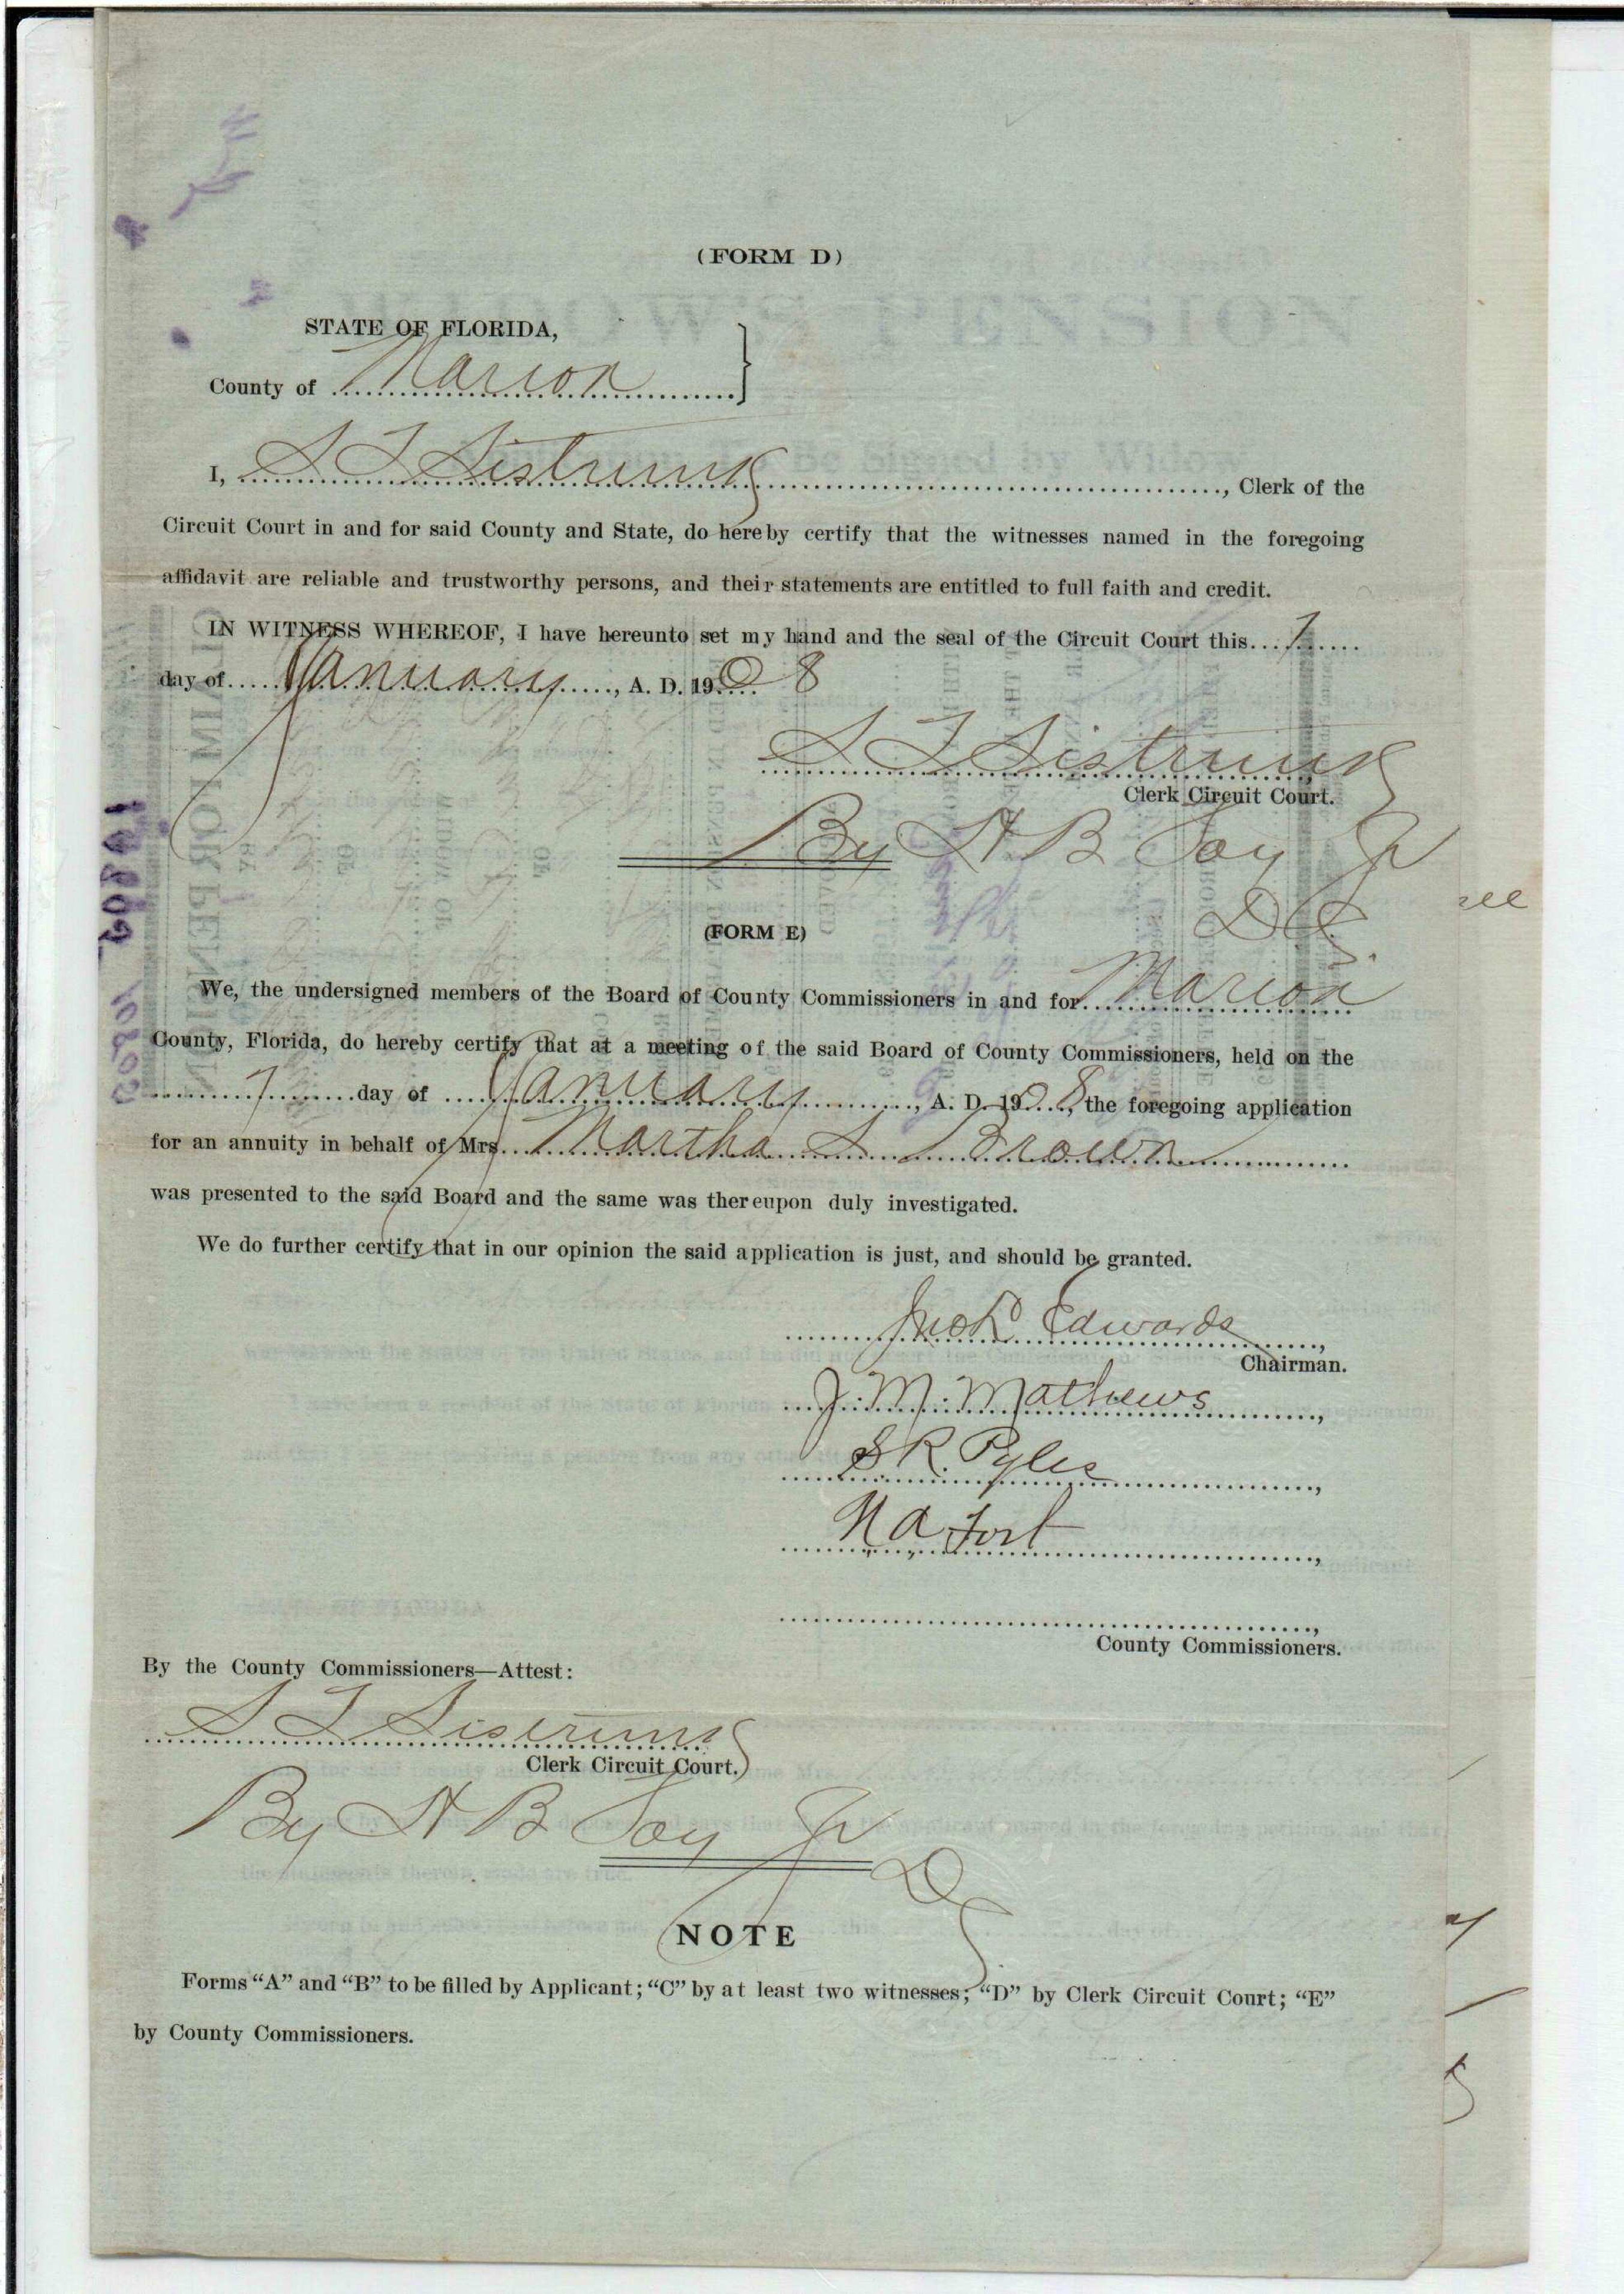 (FORM D)
STATE OF FLORIDA,
County of Marion
I, S T Sistrunk, Clerk of the
Circuit Court in and for said County and State, do hereby certify that the witnesses named in the foregoing
affidavit are reliable and trustworthy persons, and their statements are entitled to full faith and credit.
IN WITNESS WHEREOF, I have hereunto set my hand and the seal of the Circuit Court this 7
day of January, A. D. 1908
S T Sistrunk
Clerk Circuit Court.
By H B Foy Jr
D C
(FORM E)
We, the undersigned members of the Board of County Commissioners in and for Marion
County, Florida, do hereby certify that at a meeting of the said Board of County Commissioners, held on the
7 day of January, A. D. 1908, the foregoing application
for an annuity in behalf of Mrs. Martha S Brown
was presented to the said Board and the same was thereupon duly investigated.
We do further certify that in our opinion the said application is just, and should be granted.
Edwards,
Chairman.
J. M. Mathews,
S R Pyles,
N A Fort,
County Commissioners.
By the County Commissioners—Attest:
S T Sistrunk
Clerk Circuit Court.
By H B Foy Jr
D
NOTE
Forms "A" and "B" to be filled by Applicant; "C" by at least two witnesses; "D" by Clerk Circuit Court; "E"
by County Commissioners.